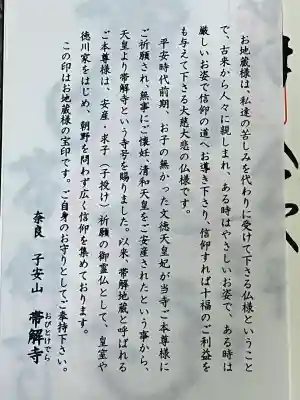 お地蔵様は、私達の苦しみを代わりに受けて下さる仏様ということ
で、古来から人々に親しまれ、ある時はやさしいお姿で、ある時は
厳しいお姿で信仰の道へお導き下さり、信仰すれば十福のご利益を
も与えて下さる大慈大悲の仏様です。
平安時代前期、お子の無かった文徳天皇妃が当寺ご本尊様に
ご祈願され、無事にご懐妊、清和天皇をご安産されたという事から、
天皇より帯解寺という寺号を賜りました。以来、帯解地蔵と呼ばれる
ご本尊様は、安産・求子（子授け）祈願の御霊仏として、皇室や
徳川家をはじめ、朝野を問わず広く信仰を集めております。
この印はお地蔵様の宝印です。ご自身のお守りとしてご奉持下さい。
奈良　子安山　帯解寺
おびとけでら